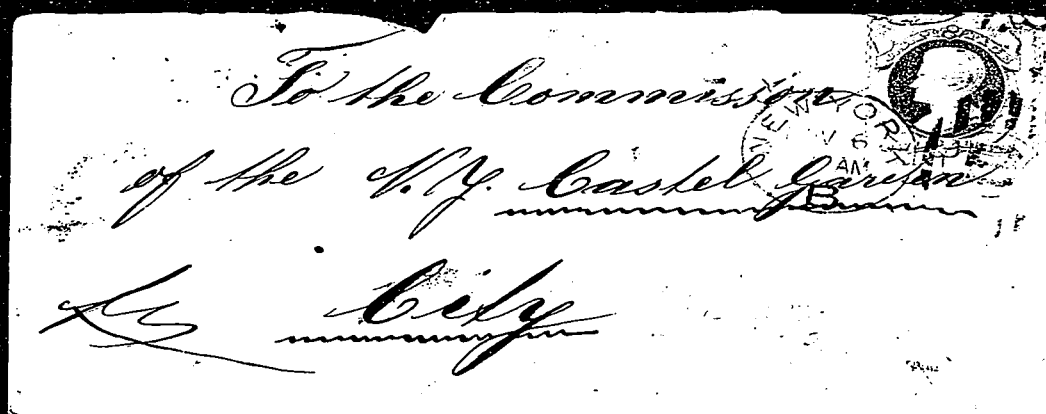 To the Commisson
of the N.Y. Castel Garden
City
NEW YORK
V 6
AM
B